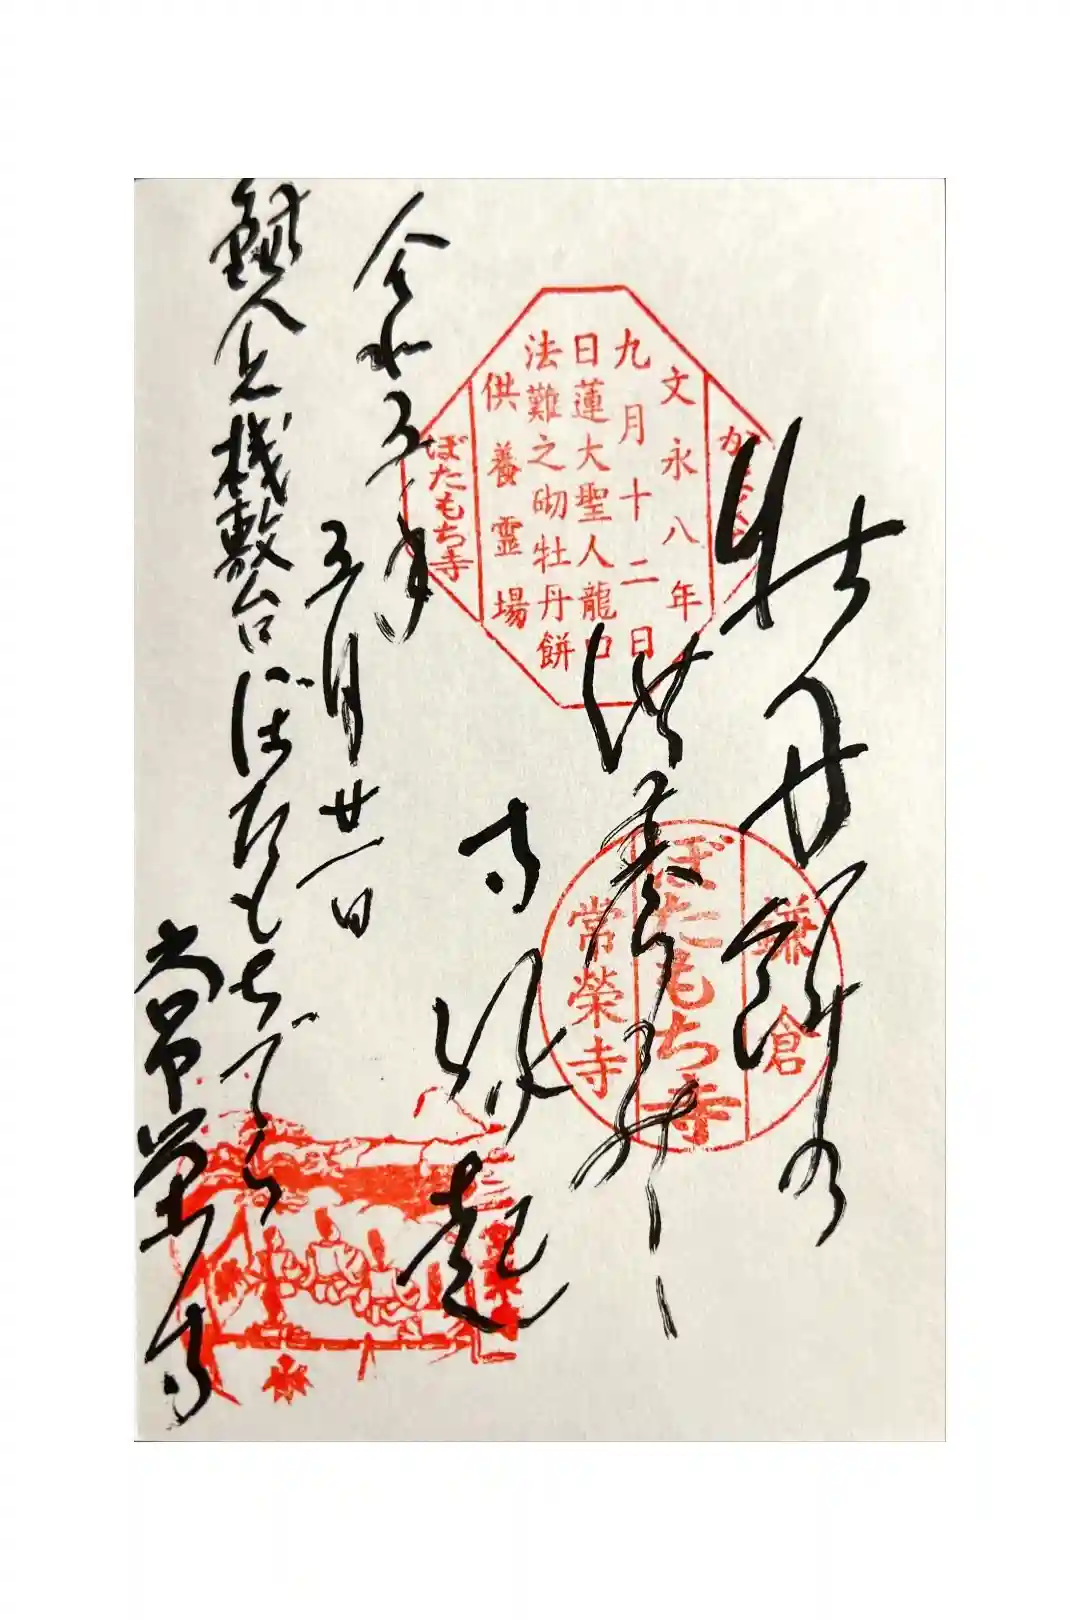 牡丹餅の
供養
寺縁起
令和五年
五月廿一日
桟敷台ぼたもちでら
常栄寺
かまくら
文永八年
九月十二日
日蓮大聖人龍口
法難之砌牡丹餅
供養霊場
ぼたもち寺
鎌倉
ぼたもち寺
常榮寺